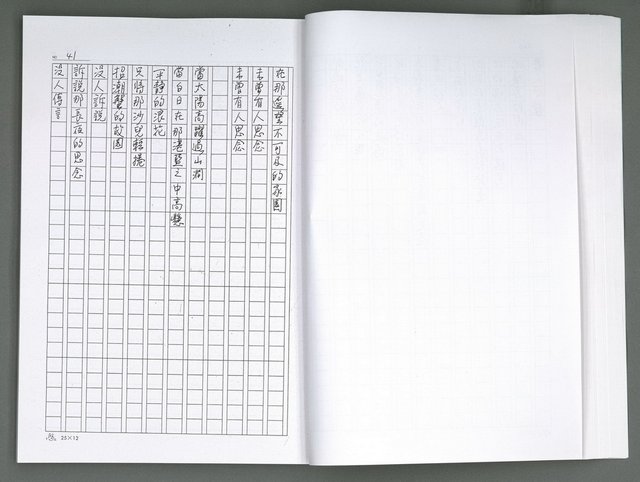 41
在那盈繫不可及的家園
未曾有人思念
未曾有人思念
當太陽高躍過山澗
當白日在那湛藍之中高懸
平靜的浪花
只將那沙兒輕捲
招潮蟹的故園
沒人訴說
訴說那長夜的思念
沒人傳言
25×12